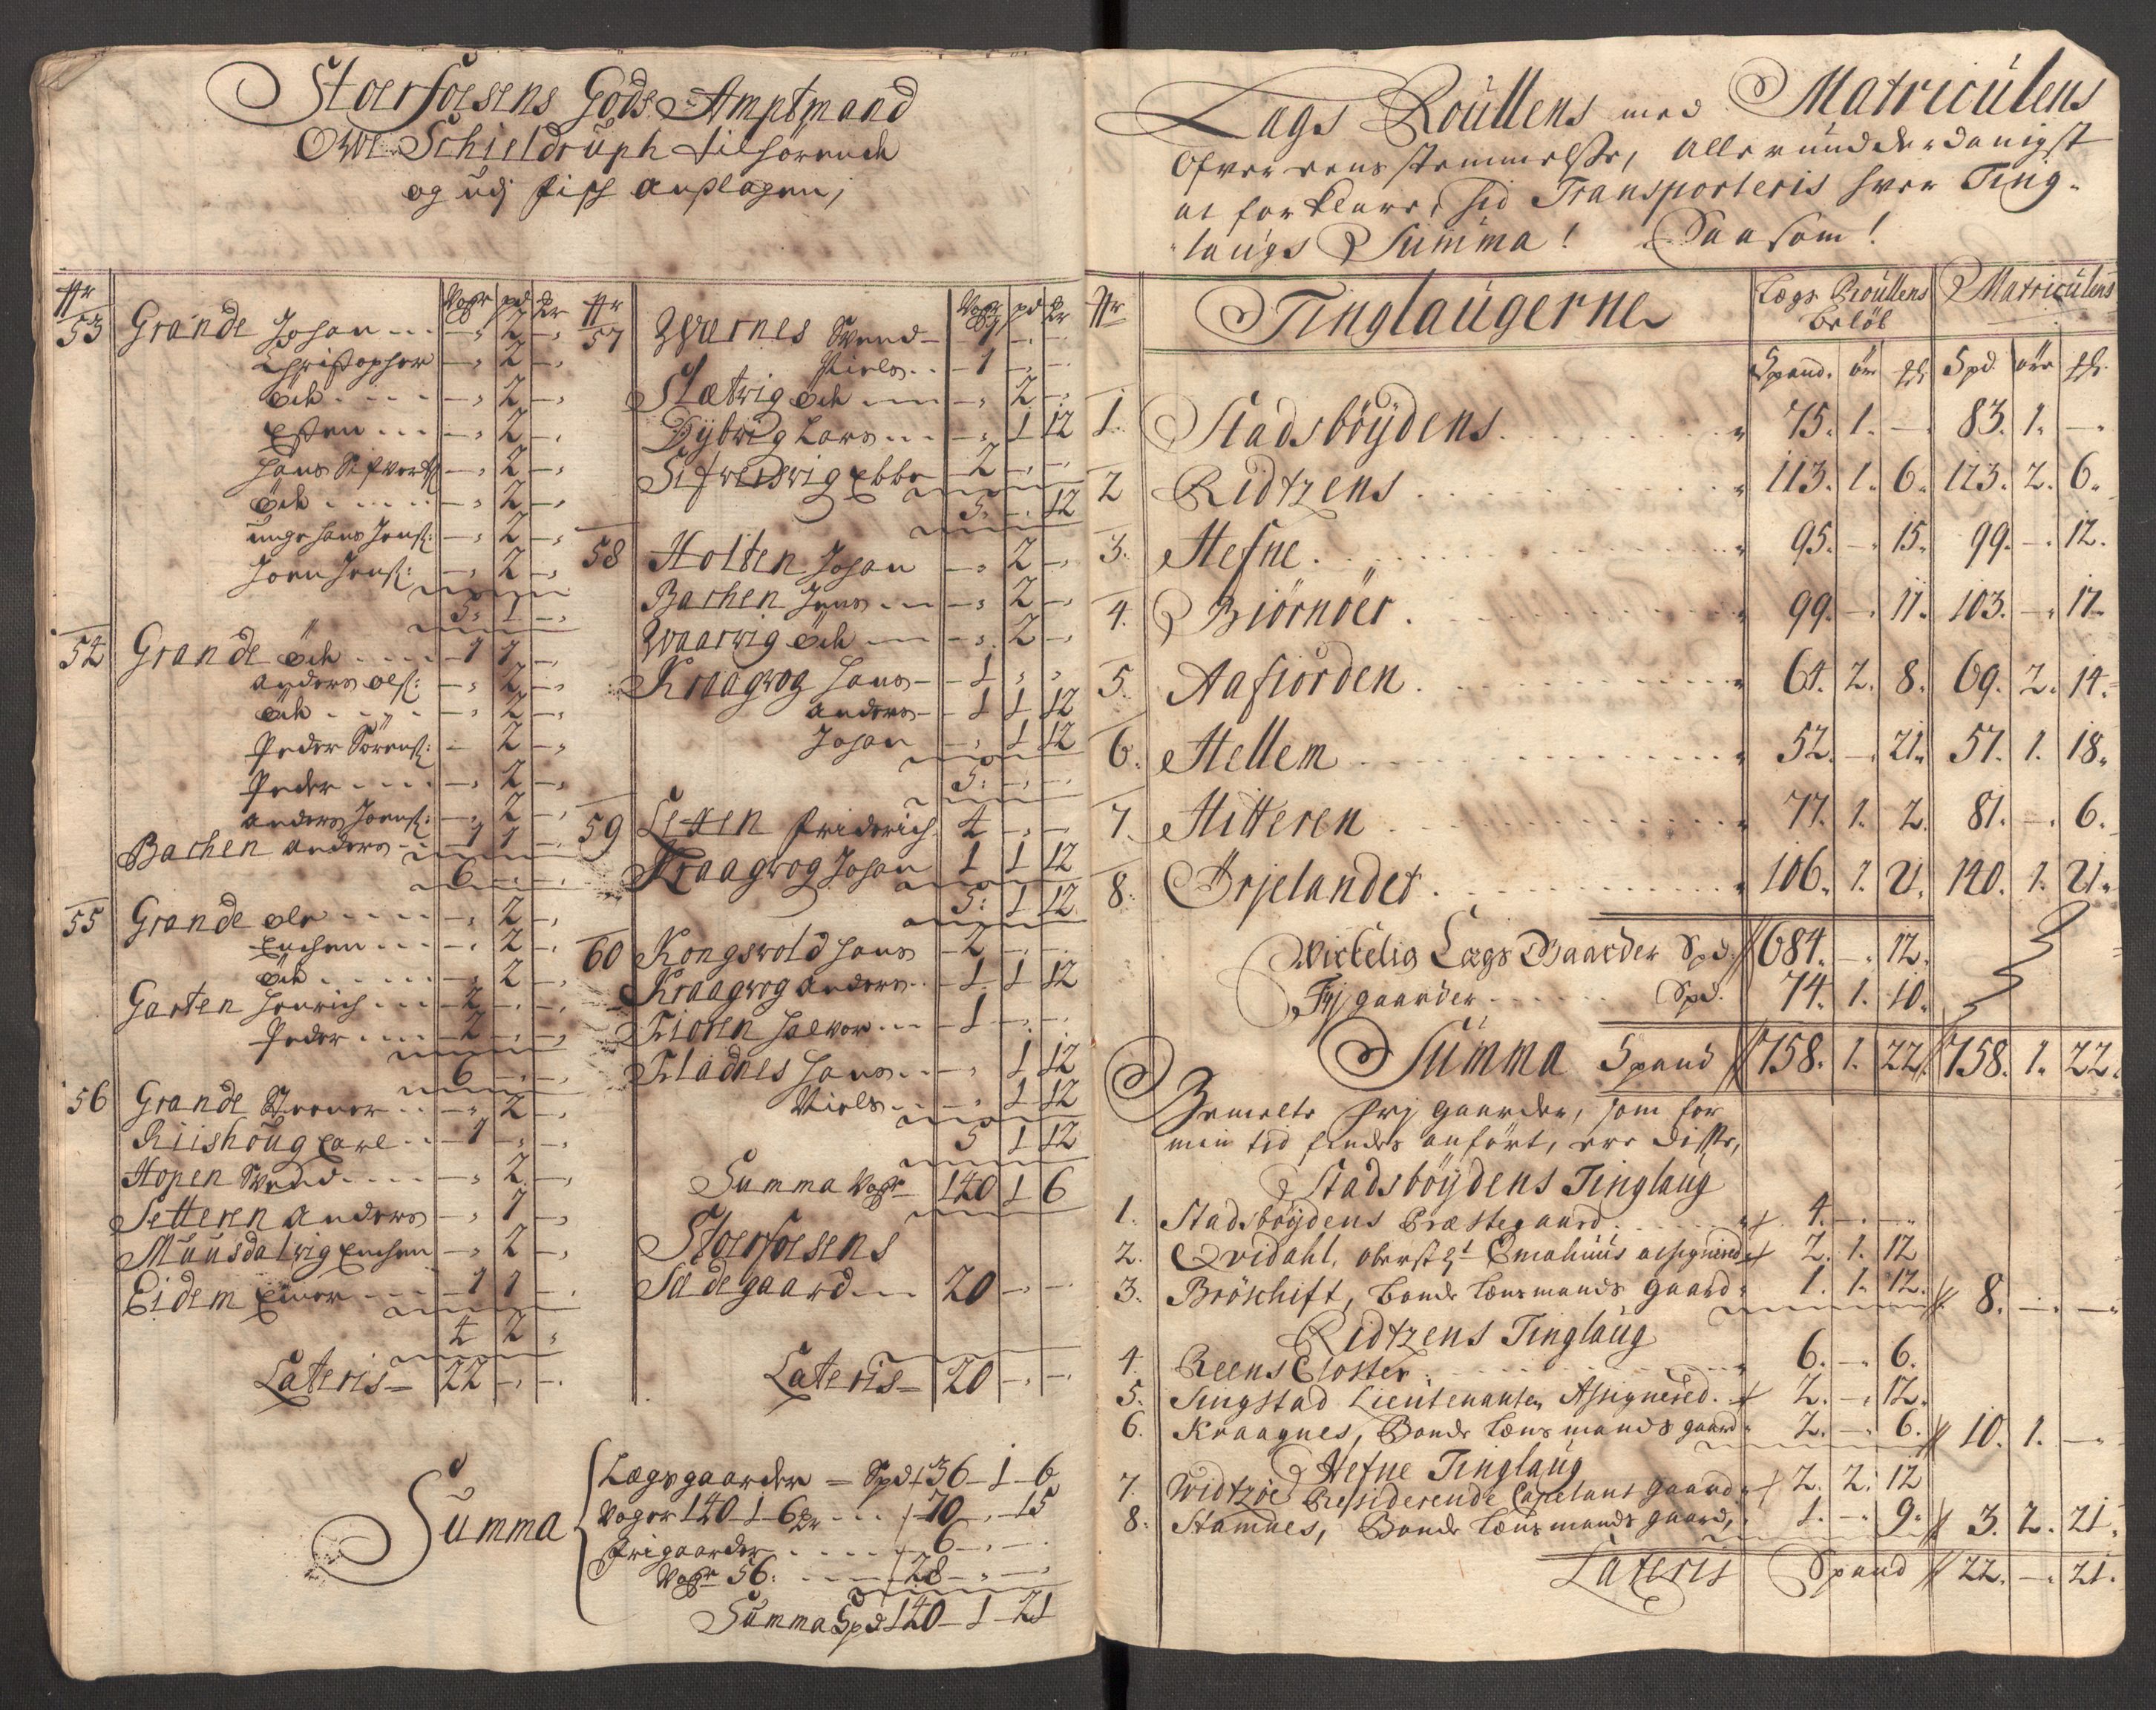 Storfosens Gods Amptmand
Owe Schieldruph tilhörende
og udj fisch anslagen,
Nr Woger pd mr
53 Grande Johan - " 2 - "
Christopher - " 2 - "
öde - " 2 - "
Esten - " 2 - "
Hans Sifverts: - " 2 - "
öde - " 2 - "
unge Hans Jens: - " 2 - "
Joen Jens: - " 2 - "
5. 1 - "
54 Grande öde 1 1 - "
Anders Ols: - " 2 - "
öde - " 2 - "
Peder Sörens: - 2 - "
Peder - " 2 - "
Anders Joens: - " 2 - "
Bachen Anders 1 1 -
6 - " - "
55 Grande Ole - " 2 - "
Enchen - " 2 - "
öde - " 2 - "
Garten Henrich 2 - " - "
Peder 2 - " - "
6 - " - "
56 Grande - " 2 - "
Riishoug Carl 1 - " - "
Hopen Svend - " 2 - "
Setteren Anders - " 1 - "
Muusdalwig Enchen - " 2 - "
Eidem Einer 1 1 - "
4 2 "
Lateris 22 - " - "
Nr Woger pd mr
57 Warnes Svend 1 - " - "
Niels 1 - " - "
Slætwig öde - " 2 - "
Dybwig Lars - " 1 12
Sifwerswig Ebbe 2 - " - "
5. - 12
58 Holten Johan - " 2 - "
Bachen Jens - " 2 - "
Waarwig öde - " 2 - "
Kraagwog Hans 1 " "
Anders 1 1 12
Johan - " 1 12
5. - " - "
59 Lexen Friderich 4 - " - "
Kraagwog Johan 1 1 12
5. 1 12
60 Kongswold Hans 2 - " - "
Kraagwog Anders 1 1 12
Tioren Halvor 1 - " - "
Fladnes Hans - " 1 12
Niels - " 1 12
5 1 12
Summa Woger 140 1 6
Storfosens
Sædegaard 20 - " - "
Lateris 20 - " - "
Summa
Lægsgaarder - Spd 36 - 1 - 6
Woger 140 - 1 - 6 mr 70 - " 15
Frigaarder 6 - " -
Woger 56. 28 - " -
Summa Spd 140 - 1 - 21
Lags Roullens med Matriculens
Ofvereensstemmelse, allerundderdanigst
at forklare, hid Transporteris hver Ting-
laugs Summa! Saasom!
Nr Tinglaugerne Lægs Roullens Beløb Matriculens
Spand. ör Spd. ör
1. Stadsböydens 75. 1. - 83. 1. -
2 Ridtzens 113. 1. 6. 123. 2. 6.
3. Hefne 95. - 15. 99. - 12.
4. Biörnöer 99. - 11. 103. - 17.
5. Aafiorden 64. 2. 8. 69. 2. 14.
6. Hellem 52. - 21. 57. 1. 18.
7. Hitteren 77. 1. 2. 81. - 6.
8. Örjelandet 106. 1. 21. 140. 1. 21.
Wirkelig Lægs Gaarder Spd. 684. - 12.
Fri gaarder Spd. 74. 1. 10.
Summa Spand 758. 1. 22. 758. 1. 22.
Bemelte frj gaarder, som for
min tid findes anfört, ere disse,
Stadsböydens Tinglaug
1. Stadsböydens Præstegaard 4. - -
2. Qvidahl, oberst Emahuus assignered 2. 1. 12
3. Bröschift, Bonde lensmands gaard 1. 1. 12. 8. - -
Ridtzens Tinglaug
4. Reens Closter 6. - 6.
5. Singstad Lieutenanten Assignered. 2. - 12.
6. Kraagnes, Bonde lensmands gaard 2. - 6. 10. 1. -
Hefne Tinglaug
7. Widtzöe Residerende Capelans gaard 2. 2. 12
8. Stamnes, Bonde lensmands gaard, 1. - 9. 3. 2. 21.
Lateris Spand 22. - 21.